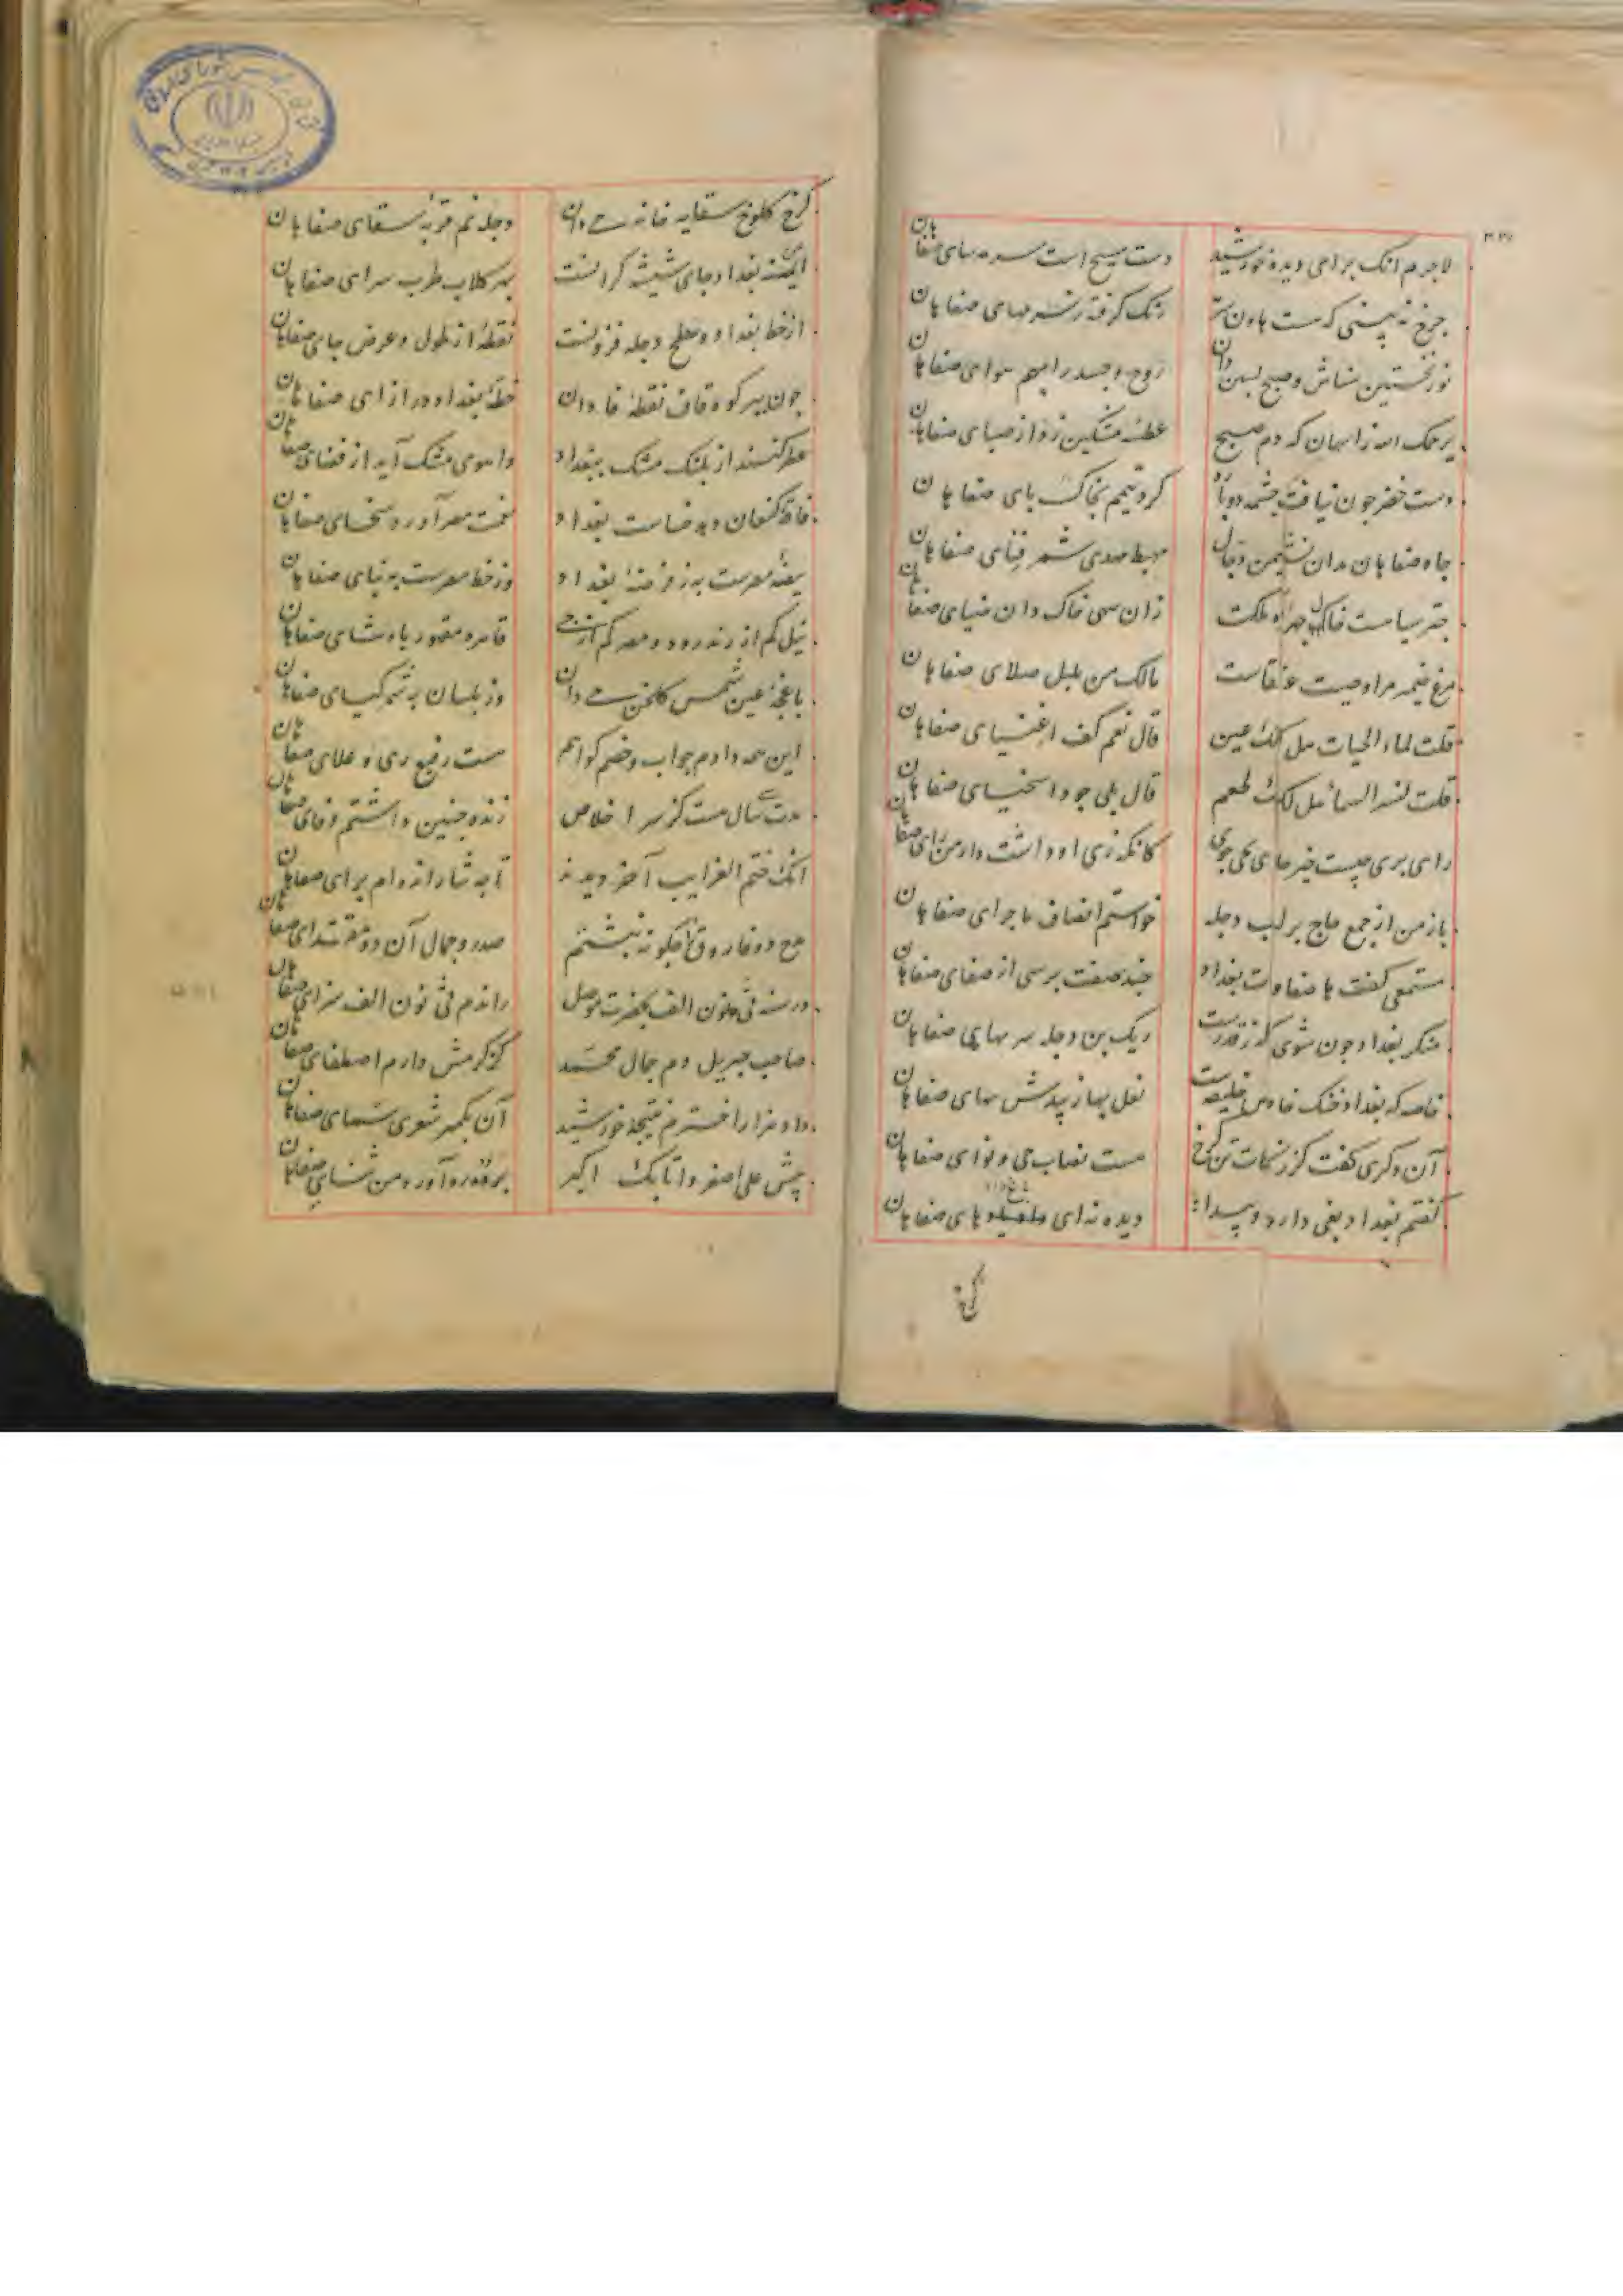 لاجرم انک برای دیده خورشید دست مسیح است سرمه سای صفاهان
چرخ نه بینی که هست هاون رنک گرفته ز سرمهای صفاهان
نور نخستین شناس و صبح پسین دان روح و جسد را بهم هوای صفاهان
یرحمک الله زد آسمان که دم صبح عطسه مشکین زد از صبای صفاهان
دست خضر چون نیافت چشمه دوباره کرد تیمم بخاک پای صفاهان
جاه صفاهان مدان نشیمن دجال مهبط مهدی شمر فنای صفاهان
چتر سیاهست خاک ملکت زان سوی خاک دان ضیای صفاهان
مرغ ضمیر مرا وصیت عنقاست مالک من بلبل صلای صفاهان
قلت لماء الحیات هل لک عین قال نعم کف اغنیای صفاهان
قلت لنسر السما هل لک طعم قال بلی جود اسخیای صفاهان
رای بری چیست خیز جای بجی جوی کانکه ز ری او داشت داشت رای صفاهان
باز من از جمع حاج بر لب دجله خواستم انصاف ماجرای صفاهان
مستمعی گفت با صفاوت بغداد چند صفت پرسی از صفای صفاهان
منکر بغداد چون شوی که ز قدر است ریک بن دجله سر بهای صفاهان
خاصه که بغداد خنک خاص خلیفه است نعل بها زیبدش بهای صفاهان
آن دگری گفت کز زکات تن کرخ هست نصاب جی و نوای صفاهان
گفتم بغداد بغی دارد و بیداد دیده نه ای داد های صفاهان
کرخ
کرخ کلوخ سقایه خانه جی دان دجله نم قربه سقای صفاهان
ایمنه بغداد جای شیشه گرانست بهر گلاب طرب سرای صفاهان
از خط بغداد و سطح دجله فزونست نقطه از طول و عرض جای صفاهان
چون بسر کوه قاف نقطه فا دان خطه بغداد در ازای صفاهان
عطر کنند از پلنک مشک ببغداد و آهوی مشک آید از فضای صفاهان
فاقه کنعان دهد خساست بغداد نعمت مصر آورد سخای صفاهان
بیضه مصر است به ز فرضه بغداد وز خط مصر است به بنای صفاهان
نیل کم از زنده رود و مصر کم از جی قاهره مقهور پادشای صفاهان
باغچه عین شمس گلخن جی دان وز بلسان به شمر گیای صفاهان
این همه دادم جواب و خصم گواهم هست رفیع ری و علای صفاهان
مدت سی سال هست کز سر اخلاص زنده چنین داشتم وفای صفاهان
انک ختم الغرایب آخر دیدند تا چه ثنا رانده ام برای صفاهان
مدح دو فاروق چگونه نبشتم صدر و جمال آن دو مقتدای صفاهان
در سنه ثی نون الف بحضرت موصل راندم ثی نون الف سزای صفاهان
صاحب جبریل دم جمال محمد کز کرمش دارم اصطفای صفاهان
داد هزار اخترم نتیجه خورشید آن بگهر شعری سمای صفاهان
پیش علی اصغر و اتابک اکبر برده ره آورد من ثنای صفاهان